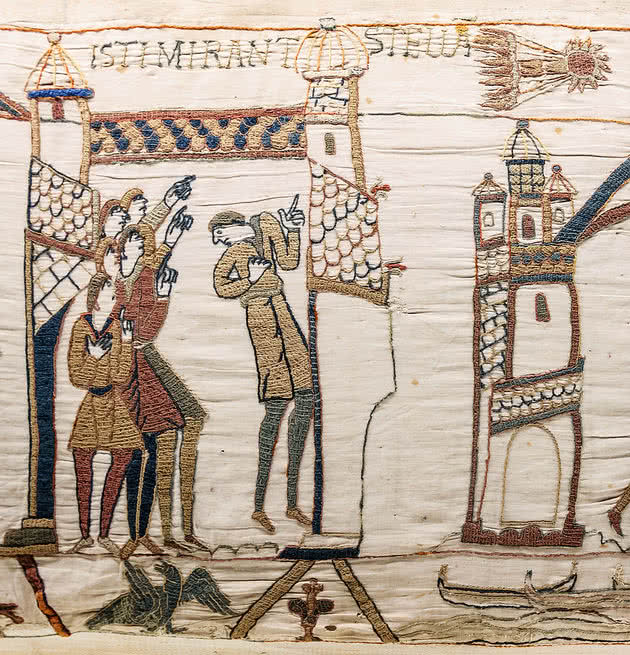 ISTI MIRANT STELLA